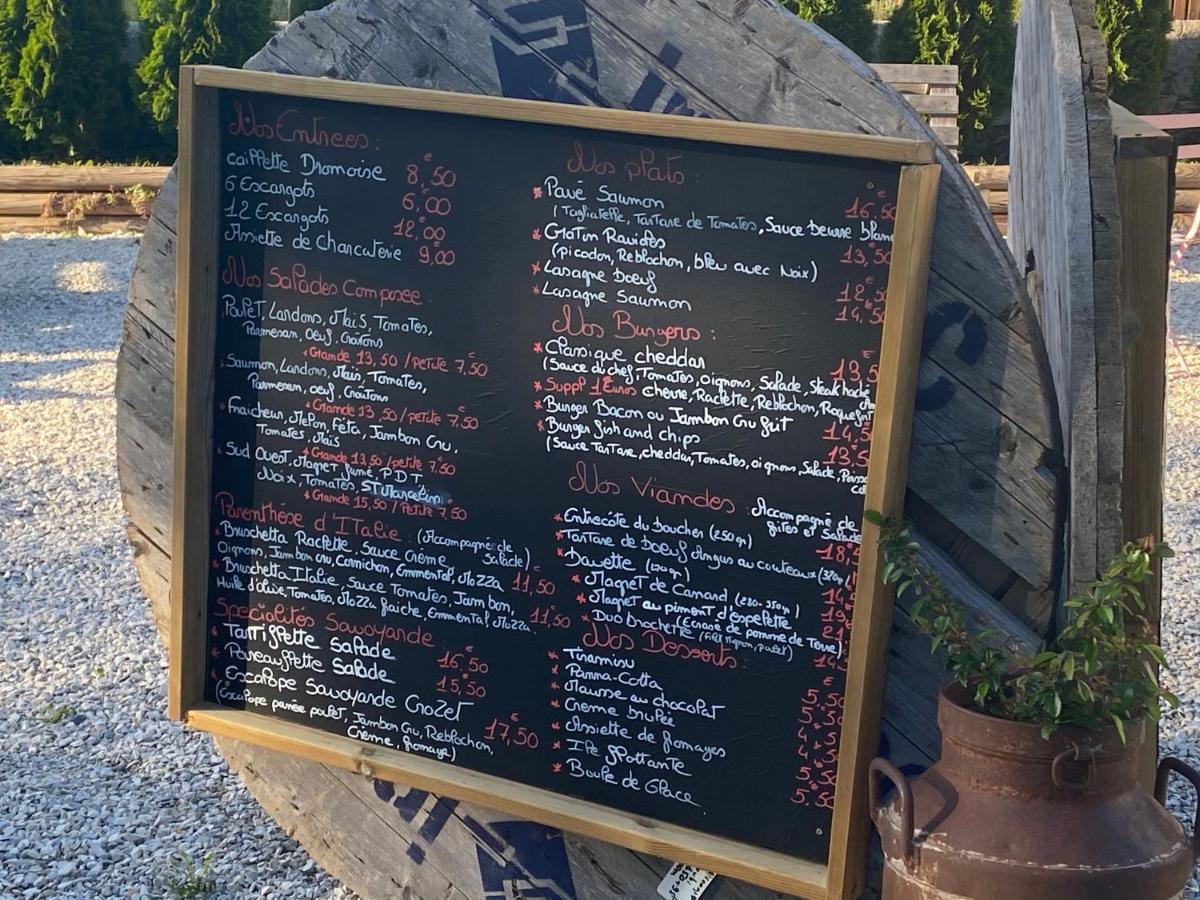 Nos Entrees :
caillette Dromoise 8,50€
6 Escargots 6,00
12 Escargots 12,00
Assiette de Charcuterie 9,00
Nos Salades Composee :
Poulet, Lardons, Maïs, Tomates,
Parmesan, Oeuf, Croûtons
* Grande 13,50 / petite 7,50
Saumon, Lardons, Maïs, Tomates,
Parmesan, oeuf, Croûtons
* Grande 13,50 / petite 7.50
Fraicheur, Melon, Féta, Jambon Cru,
Tomates, Maïs
* Grande 13,50 / petite 7.50
Sud Ouest, Magret fumé, P.D.T,
Noix, Tomates, ST Marcelin
* Grande 15,50 / Petite 7,50
Parenthèse d'ITalie : (Accompagnée de
Salade)
* Bruschetta Raclette, Sauce Crème
Oignons, Jambon cru, Cornichon, Emmental, Mozza 11,50€
* Bruschetta Italie, Sauce Tomates, Jambon,
Huile d'olive, Tomates, Mozza fraiche, Emmental, Mozza. 11,50
Specialités Savoyarde
* Tartiflette Salade 16,50€
* Raveauflette Salade 15,50
* Escalope Savoyarde Crozet
(Escalope panée poulet, Jambon Cru, Reblochon, 17,50€
Crème, fromage)
Nos plats :
* Pavé Saumon 16,50
(Tagliatelle, Tartare de Tomates, Sauce beurre blanc
* Gratin Ravioles 13,50
(picodon, Reblochon, bleu avec Noix)
* Lasagne boeuf 12,50
* Lasagne Saumon 14,50
Nos Burgers :
* Classique cheddar 13,5
(Sauce du chef, Tomates, oignons, Salade, Steak haché
* Suppl 1 Euros chèvre, Raclette, Reblochon, Roquefort
* Burger Bacon ou Jambon Cru frit 14,5
* Burger fish and chips 13,5
(Sauce Tartare, cheddar, Tomates, oignons, Salade, Poisson
Nos Viandes : Accompagné de
frites et Salade
* Entrecôte du boucher (250gr) 18,
* Tartare de boeuf Angus au couteaux
* Bavette
* Magret de Canard
* Magret au piment d'espelette
(Ecrasé de pomme de Terre)
* Duo brochette (Filet Mignon, poulet) 14,
Nos Desserts :
* Tiramisu 5.50
* Panna-Cotta
* Mousse au chocolat
* Creme Brulée
* Assiette de fromages
* Ile flottante
* Boule de Glace